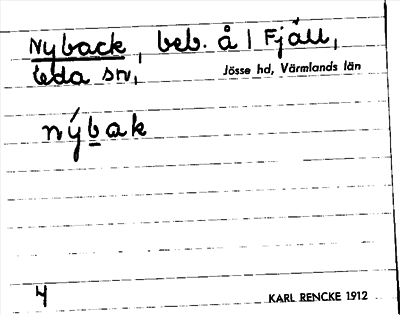 Nyback, beb. å 1 Fjäll,
Eda sn,
Jösse hd, Värmlands län
nýbak
4
KARL RENCKE 1912